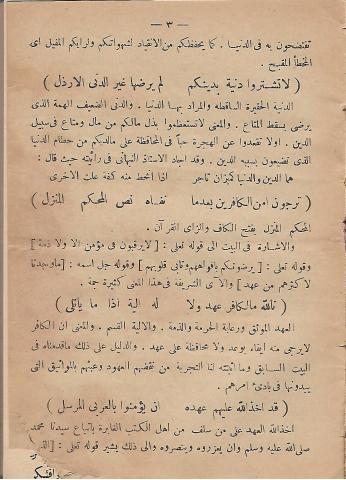 — ٣ —
تفتضحون به فى الدنيا . كما يحفظكم من الانقياد لشهواتكم ولرايكم المفيل اى
المخطأ المقبح .
( لا تشتروا دنية بدينكم لم يرضها غير الدنى الارذل )
الدنية الحقيرة الساقطه والمراد بها الدنيا . والدنى الضعيف الهمة الذى
يرضى بسقط المتاع . والمعنى لا تستعظموا بذل مالكم من مال ومتاع فى سبيل
الدين . اولا تقعدوا عن الهجرة حباً فى المحافظة على مالديكم من حطام الدنيا
الذى تضيعون بسببه الدين . وقد اجاد الاستاذ النبهانى فى رائيته حيث قال :
هما الدين والدنيا كميزان تاجر اذا انحط منه كفة علت الاخرى
( ترجون امن الكافرين بعدما نفاه نص المحكم المنزل )
المحكم المنزل بفتح الكاف والزاى القرآن .
والاشارة فى البيت الى قوله تعلى : [ لايرقبون فى مؤمن الا ولا ذمة ]
وقوله تعلى : [ يرضونكم بافواههم وتابى قلوبهم ] وقوله جل اسمه : [ وماوجدنا
لاكثرهم من عهد ] والآى الشريفة فى هذا المعنى كثيرة جمة .
( تالله مالكافر عهد ولا له الية اذا ما ياتلى )
العهد الموثق ورعاية الحرمة والذمة . والالية القسم . والمعنى ان الكافر
لايرجى منه ايفاء بوعد ولا محافظة على عهد . والدليل على ذلك ماقدمناه فى
البيت السابق وما اثبتته لنا التجربة من نقضهم العهود وعبثهم بالمواثيق التى
يبدونها فى بادئ امرهم .
( قد اخذ الله عليهم عهده ان يؤمنوا بالعربى المرسل )
اخذ الله العهد على من سلف من اهل الكتب الغابرة باتباع سيدنا محمد
صلى الله عليه وسلم وان يعزروه وينصروه والى ذلك يشير قوله تعلى :